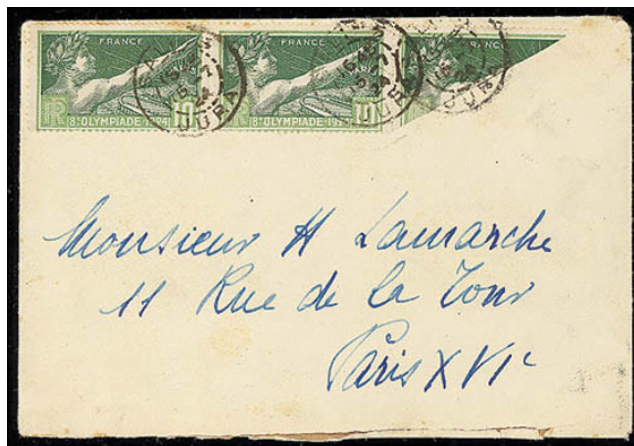 FRANCE
RF 8E OLYMPIADE 1924 10
FRANCE
RF 8E OLYMPIADE 1924 10
FRANCE
JURA
JURA
Monsieur H Lamarche
11 Rue de la Tour
Paris XVIe